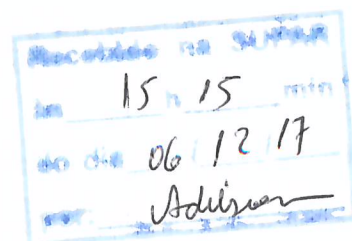 Recebido na SUPAR
às 15 h 15 min
do dia 06 / 12 / 17
por: